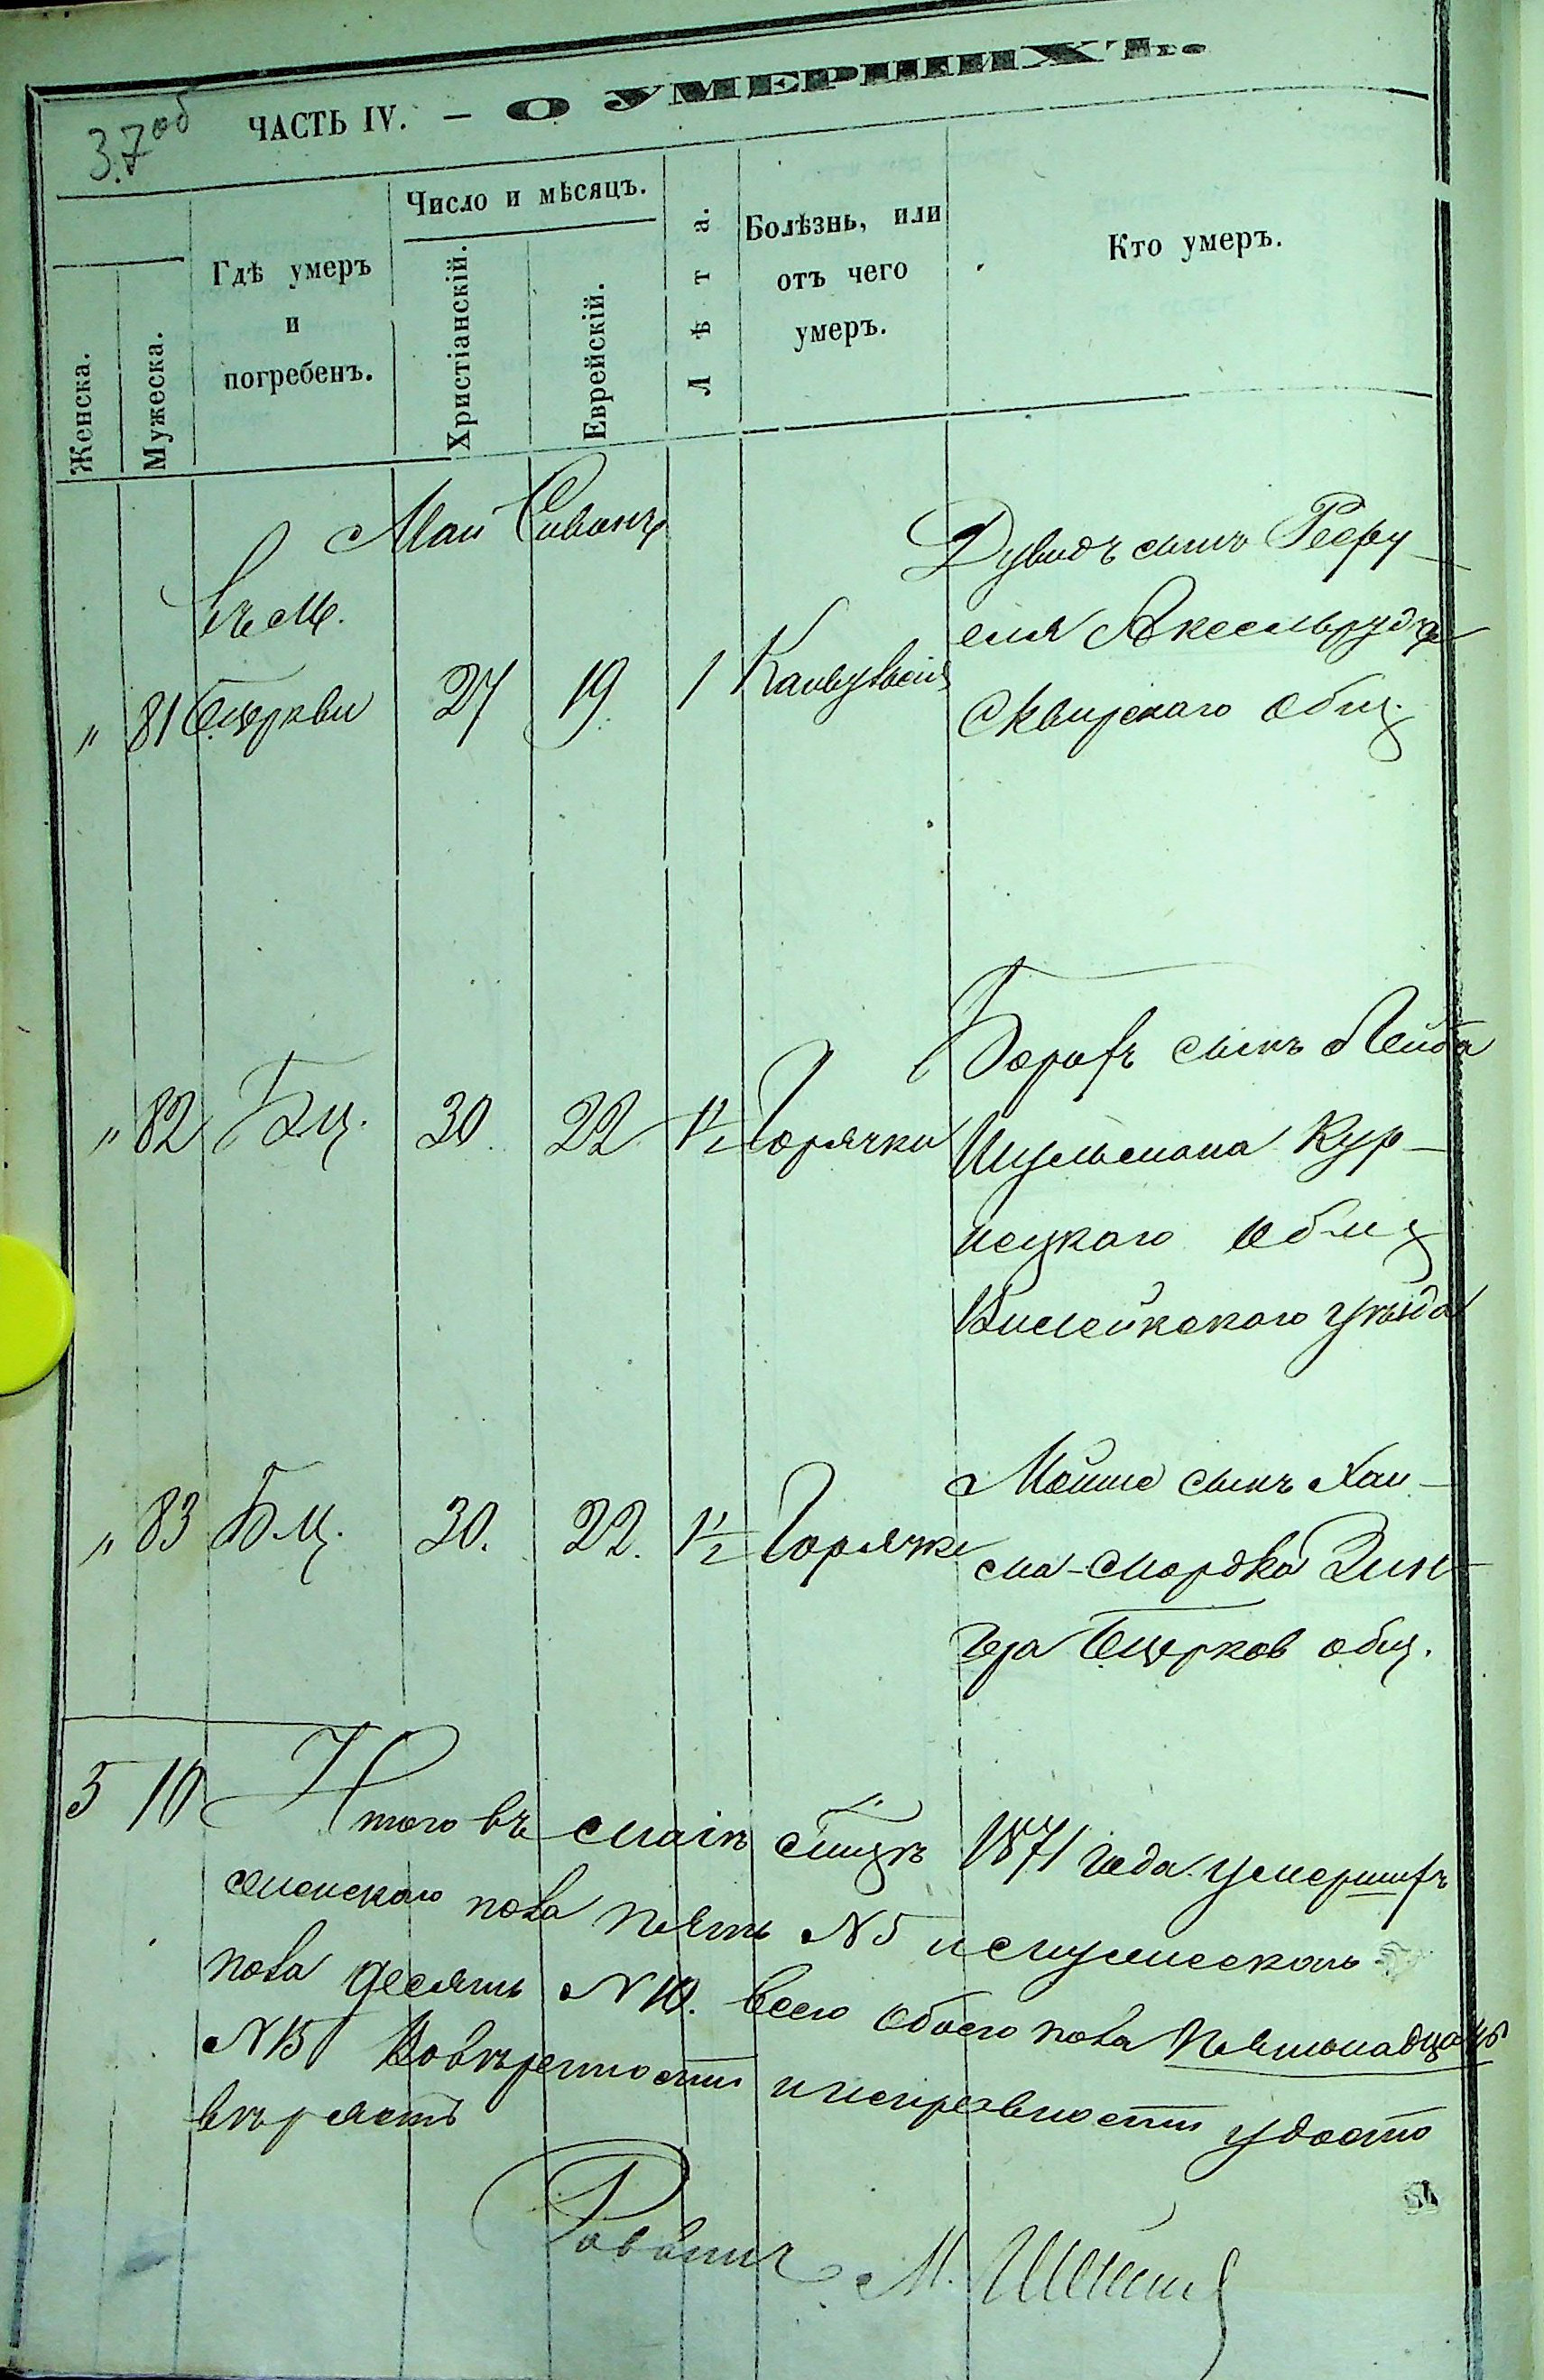 37об
ЧАСТЬ IV. — О УМЕРШИХЪ.
Женска.
Мужеска.
Гдѣ умеръ
и
погребенъ.
Число и мѣсяцъ.
Христіанскій.
Еврейскій.
Лѣта.
Болѣзнь, или
отъ чего
умеръ.
Кто умеръ.
Май Сиванъ
въ м.
" 81 Бцеркви 27 19 1 Канвульсія
Дувидъ сынъ
еля Аксельрудъ
Сквирскаго общ.
" 82 Бц. 30. 22 1½ Горячки
Борухъ сынъ Лейба
Шульмана Кур-
нецкаго общ
Вилейскаго уѣзда
" 83 Бц. 30. 22. 1½ Горячке
Мойше сынъ Хаи-
ма-Мордка Зин-
гера Бцерков общ.
5 10 Итого въ маіѣ мѣцѣ 1871 года умершихъ
женскаго пола пять N 5 и мужескаго
пола десять N 10. всего обоего пола пятьнадцать
N 15 Вовѣрности и неразвности удосто
вѣряетъ
Раввинъ М.